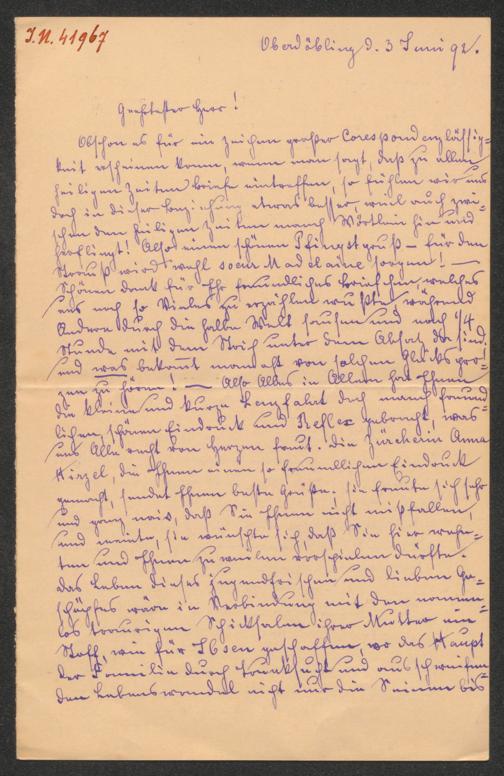 I.N. 41967
Oberdöbling d. 3 Juni 92.
Geehrtester Herr!
Obschon es für ein Zeichen großer Corespondenzlässig-
keit erscheinen kann, wenn man sagt, daß zu allen
heiligen Zeiten Briefe eintreffen, so fühlen wir uns
doch in dieser Beziehung etwas besser, weil auch zwi-
schen den heiligen Zeiten manch Wörtlein hin und
herklingt! Also einen schönen Pfingstgruß – für den
Strauß wird wohl soeur Madelaine sorgen! –
Schönen Dank für Ihr freundliches Brieflein, welches
uns noch so Vieles zu erzählen wußte, während
Andere durch die halbe Welt sausen und nach 1/4
Stunde mit dem Strich unter dem Absatz da sind.
und was bekomt man oft von solchen Glückspil-
zen zu hören! – Also Alles in Allem hat Ihnen
die kleine und kurze Lenzfahrt doch manch freund-
lichen, schönen Eindruck und Reflex gebracht, was
uns Alle recht von Herzen freut. Die Zürcherin Anna
Hirzel, die Ihnen einen so freundlichen Eindruck
gemacht, sendet Ihnen beste Grüße. Sie freute sich sehr
und ganz naiv, daß Sie Ihnen nicht mißfallen,
und meinte, sie wünschte sich, daß Sie hier wohn-
ten und Ihnen zuweilen vorspielen dürfte.
Das Leben dieses jugendfrischen und lieben Ge-
schöpfes wäre in Verbindung mit den namen-
los traurigen Schicksalen ihrer Mutter ein
Stoff, wie für Ibsen geschaffen, wo das Haupt
der Familie durch Trunksucht und ausschweifen-
den Lebenswandel nicht nur die Seinen bis